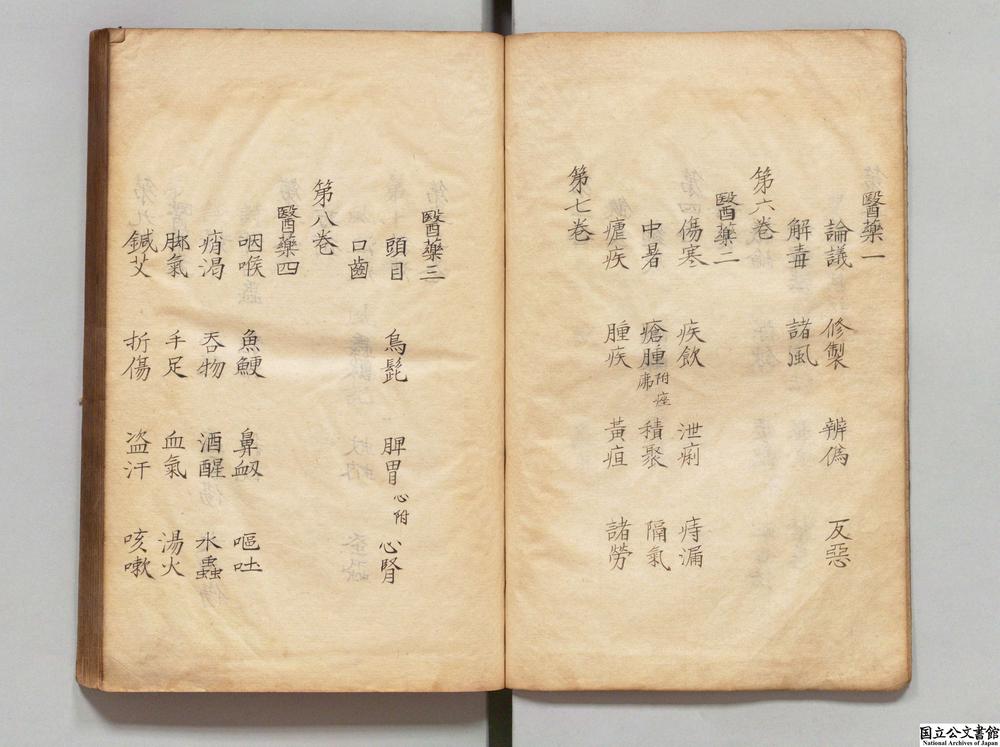 醫藥一
論議 修製 辨偽 反惡
解毒 諸風
第六卷
醫藥二
傷寒 疾飲 泄痢 痔漏
中暑 瘡腫 附痤疿 積聚 隔氣
瘧疾 腫疾 黃疸 諸勞
第七卷
醫藥三
頭目 烏髭 脾胃 心附 心腎
口齒
第八卷
醫藥四
咽喉 魚鯁 鼻衂 嘔吐
痟渴 吞物 酒醒 水蟲
脚氣 手足 血氣 湯火
鍼艾 折傷 盗汗 咳嗽
国立公文書館
National Archives of Japan